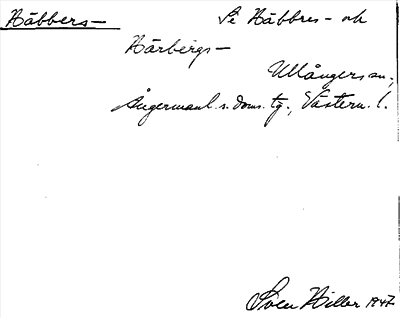 Häbbers- Se Häbbres- och
Härbergs-
Ullångers sn.,
Ångermanl. s. doms. tg., Västern. l.
Sven Hiller 1947